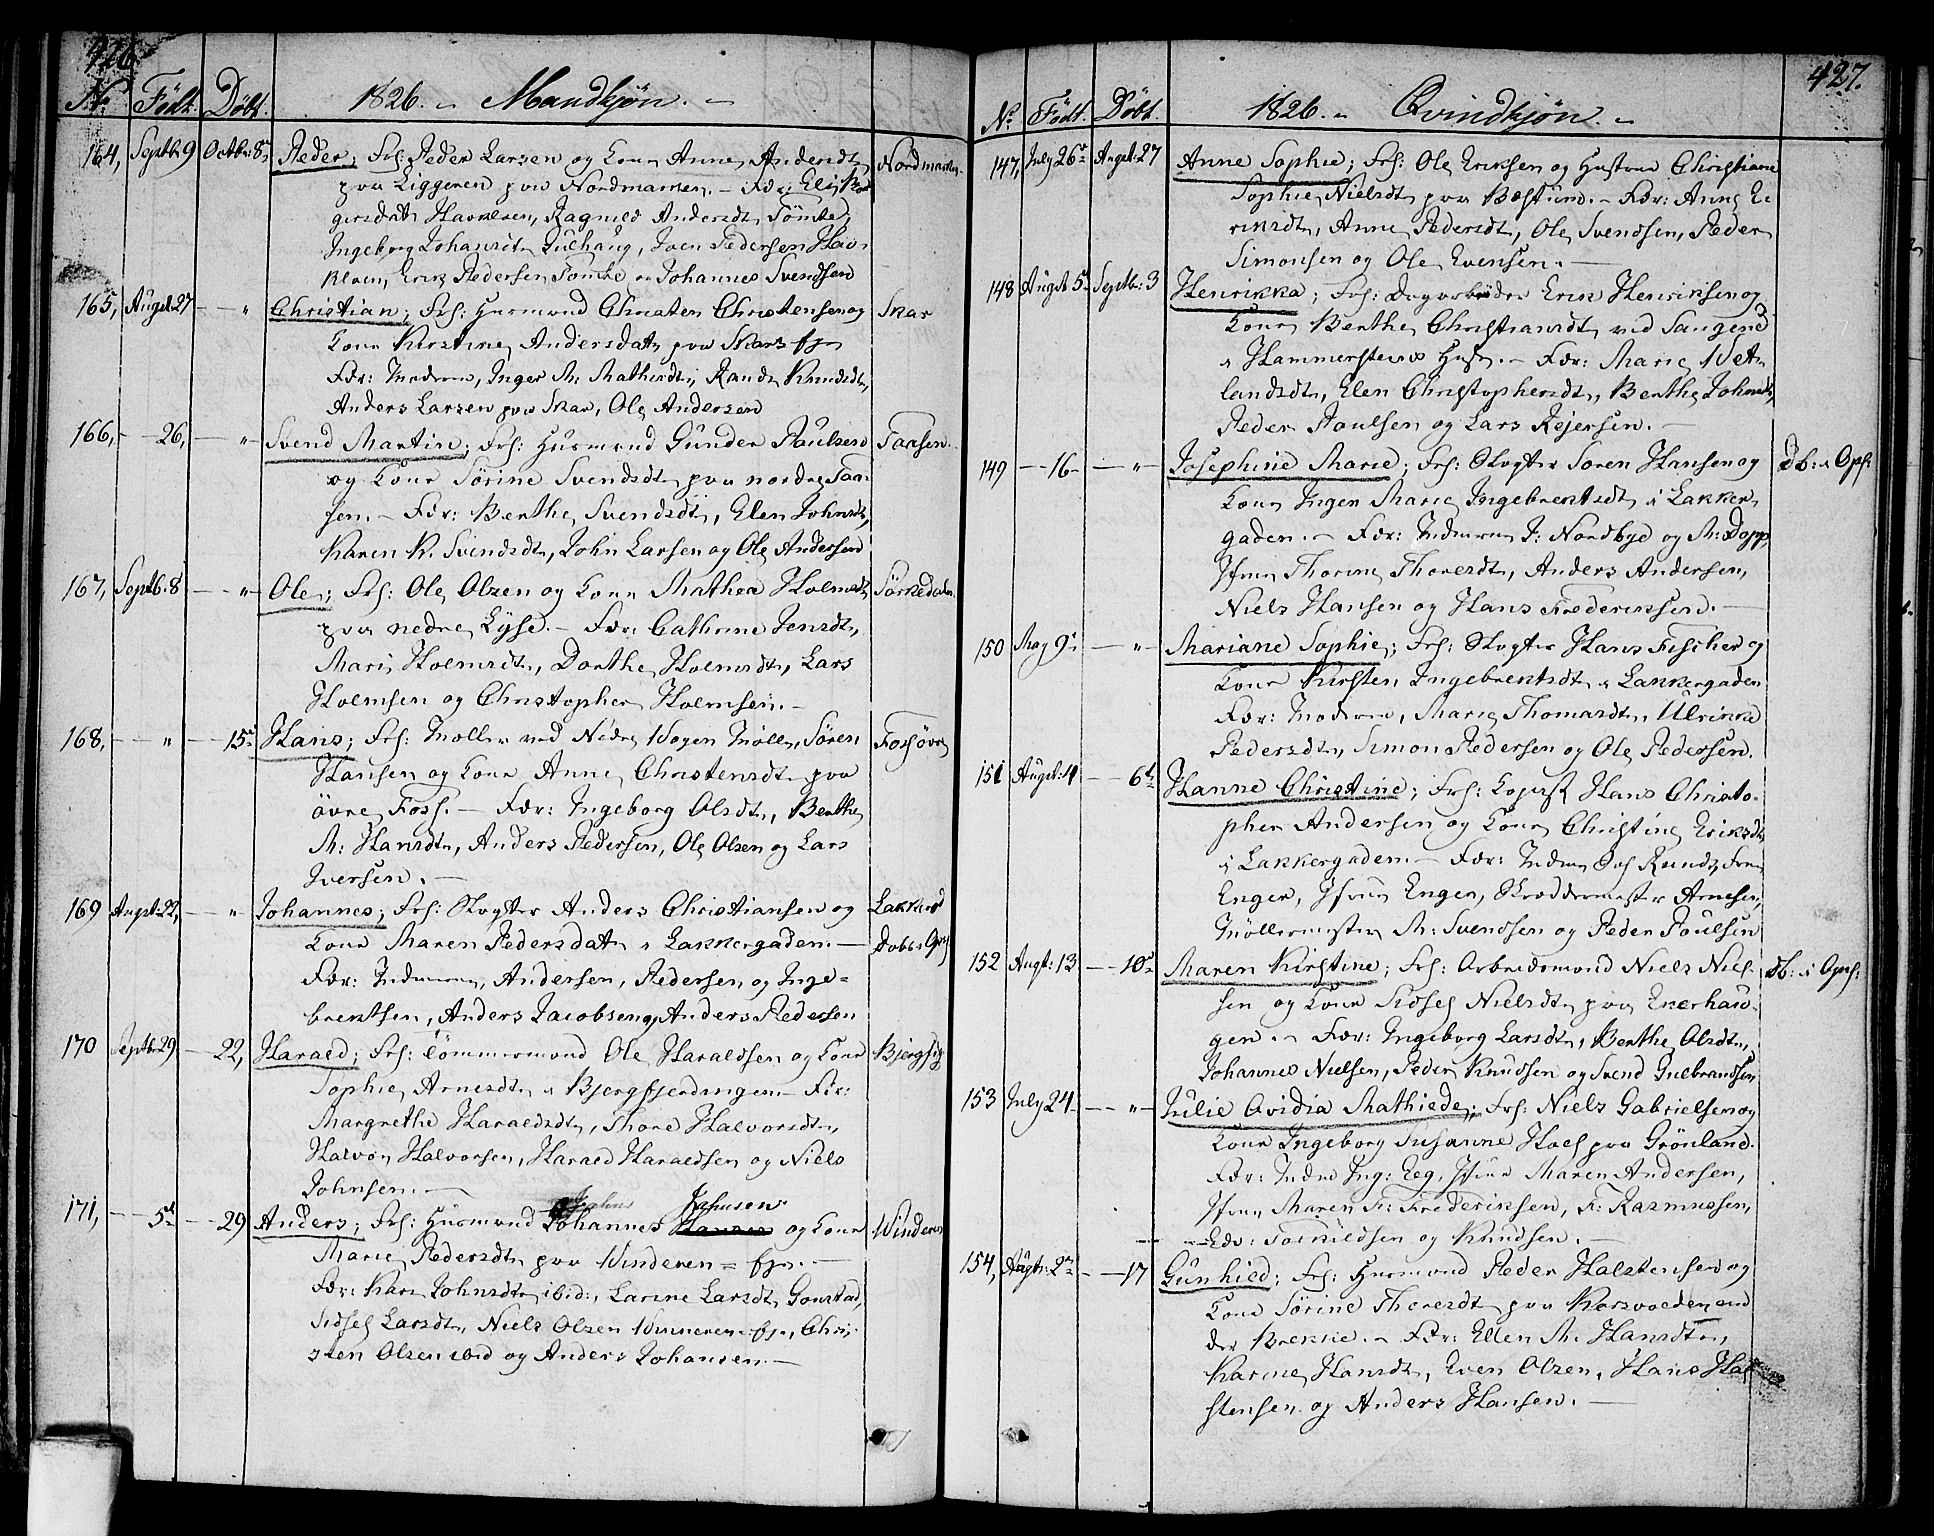 426.
No Födt. Döbt. 1826. - Mandkjön. -
164, Septbr 9 Octbr: 8de Peder; Frs: Peder Larsen og Kone Anne Andersdt Nordmarken.
paa Liggeren paa Nordmarken. - Fær: Eli
gersdat Havnelsen, Ragnild Andersdt Tömte,
Ingeborg Johansdt Julhaug, Iver Pedersen Hav-
kleven, Erik Pedersen Tömte og Johannes Svendsen
165, Augst 27 - - " Christian; Frs: Huusmand Christen Christensen og Skar
Kone Kirstine Andersdat paa Skars Eje
Fær: Moderen, Inger M: Mathisdt, Randi Knudsdt,
Anders Larsen paa Skar, Ole Andersen
166, - 26, - " - Svend Martin; Frs: Huusmand Gunder Paulsen Taasen.
og Kone Sörine Svendsdt paa nordre Taa-
sen. - Fær: Berthe Svendsdt, Elen Johnsdt,
Karen K. Svendsdt, John Larsen og Ole Andersen
167, Septb. 8 - - " - Ole; Frs: Ole Olzen og Kone Mathea Holmsdt, Sörkedalen.
paa nedre Lyse. - Fær: Cathrine Jensdt,
Mari Holmsdt, Dorthe Holmsdt, Lars
Holmsen og Christopher Holmsen. -
168, - " - 15de Hans; Frs: Möller ved Nedre Vogen Mölle, Sören Foss övre
Hansen og Kone Anne Christensdt paa
övre Foss. - Fær: Ingeborg Olsdt, Berthe
M: Hansdt, Anders Pedersen, Ole Olsen og Lars
Iversen. -
169 Augst 22, - " Johannes; Frs: Vægter Anders Christiansen og Lakkerg
Kone Maren Pedersdat i Lakkergaden. - Döbt i Ops
Fær: Andersen, Pedersen og Inge-
brektsen, Anders Jacobsen og Anders Pedersen
170 Septbr 29 - 22, Harald; Frs: Tömmermand Ole Haraldsen og Kone Bjergfj
Sophie Arnesdt i Bjergfjerdingen. - Fær:
Margrethe Haraldsdt, Thore Halvorsdt,
Halvor Halvorsen, Harald Haraldsen og Niels
Johnsen. -
John Johnsen
171, - 5te - 29 Anders; Frs: Huusmand Johannes Hansen og Kone Vinderen
Marie Pedersdt paa Vinderen = Eje. -
Fær: Kari Johnsdt ibid:, Larine Larsdt Gaustad,
Sidsel Larsdt, Niels Olzen Vinderen = Eje, Chri-
sten Olzen ibid og Anders Johansen. -
427.
No Födt. Döbt. 1826. - Qvindkjön. -
147, July 26de Augst: 27 Anne Sophie; Frs: Ole Eriksen og Hustrue Christiane
Sophie Nielsdt paa Bæstum. - Fær: Anne E-
riksdt, Anne Pedersdt, Ole Svendsen, Peder
Simonsen og Ole Evensen. -
148 Augst 5te Septbr: 3 Henrikka; Frs: Dagarbeider Erik Henriksen og
Kone Berthe Christiansdt ved Saugene
i Hammerstens Huse. - Fær: Marie Vet-
landsdt, Elen Christophersdt, Berthe Johnsdt,
Peder Paulsen og Lars Rejersen. -
149 - 16 - - " - Josephine Marie; Frs: Vægter Soren Hansen og Db: i Ops:
Kone Inger Marie Ingebrektsdt i Lakker-
gaden. - Fær: J: Nordbye og M: Dopp,
Jfru Thorine Thoresdt, Anders Andersen,
Niels Hansen og Hans Frederiksen. -
150 May 9de - " - Mariane Sophie; Frs: Vægter Hans Fischer og
Kone Kirsten Ingebrektsdt i Lakkergaden
Fær: Moderen, Marie Thomasdt, Ulrikke
Pedersdt, Simon Pedersen og Ole Pedersen.
151 Augst: 4 - 6te Hanne Christine; Frs: Kopist Hans Christo-
pher Andersen og Kone Christine Eriksdt
i Lakkergaden. - Fær: Rund,
Enger, Jfru Enger, Skreddermester Arnesen,
Möllermester M: Svendsen og Peder Poulsen
152 Augt: 13 - 10de Maren Kirstine; Frs: Arbeidsmand Niels Niel- Db: i Ops:
sen og Kone Sidsel Nielsdt paa Enerhau-
gen. - Fær: Ingeborg Larsdt, Berthe Olsdt,
Johannes Nielsen, Peder Knudsen og Svend Gulbrandsen
153 July 24 - " - Julie Ovidia Mathiede; Frs: Niels Gabrielsen og
Kone Ingeborg Susanne Hoel paa Grönland.
Fær: Ing: Eeg, Jfru Maren Andersen,
Jfru Maren F: Frederiksen, F: Rasmussen,
Edv: Torkildsen og Knudsen. -
154, Augt: 2den - 17 Gunhild; Frs: Huusmand Peder Halstensen og
Kone Sörine Thoresdt paa Korsvolden un-
der Brekke. - Fær: Ellen M. Hansdt,
Karine Hansdt, Even Olzen, Hans Hal-
stensen og Anders Hansen. -